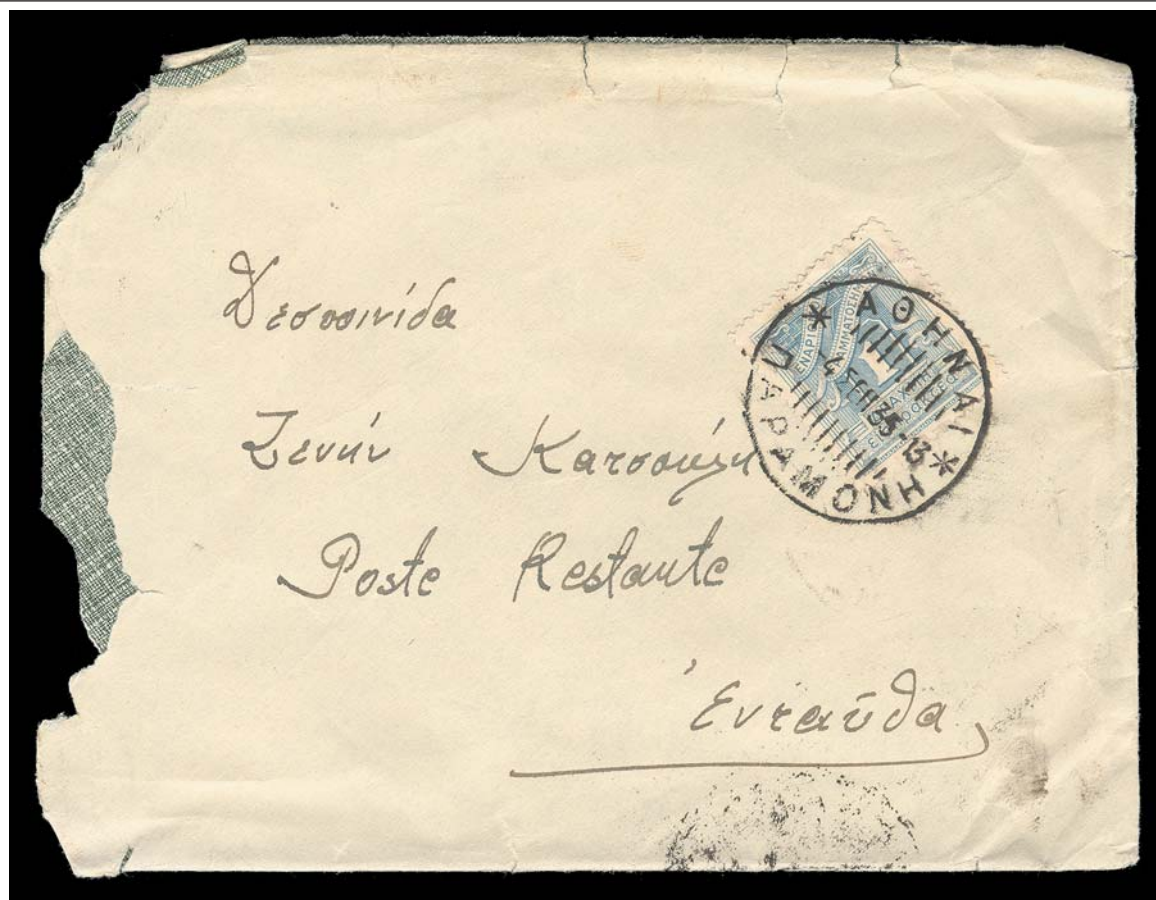 Δεσποινίδα
Ζενήν
Poste Restante
Ἐνταῦθα
ΑΘΗΝΑΙ
ΠΑΡΑΜΟΝΗ